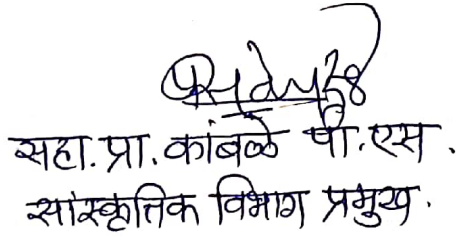 सहा. प्रा. कांबळे पी. एस.
सांस्कृतिक विभाग प्रमुख.